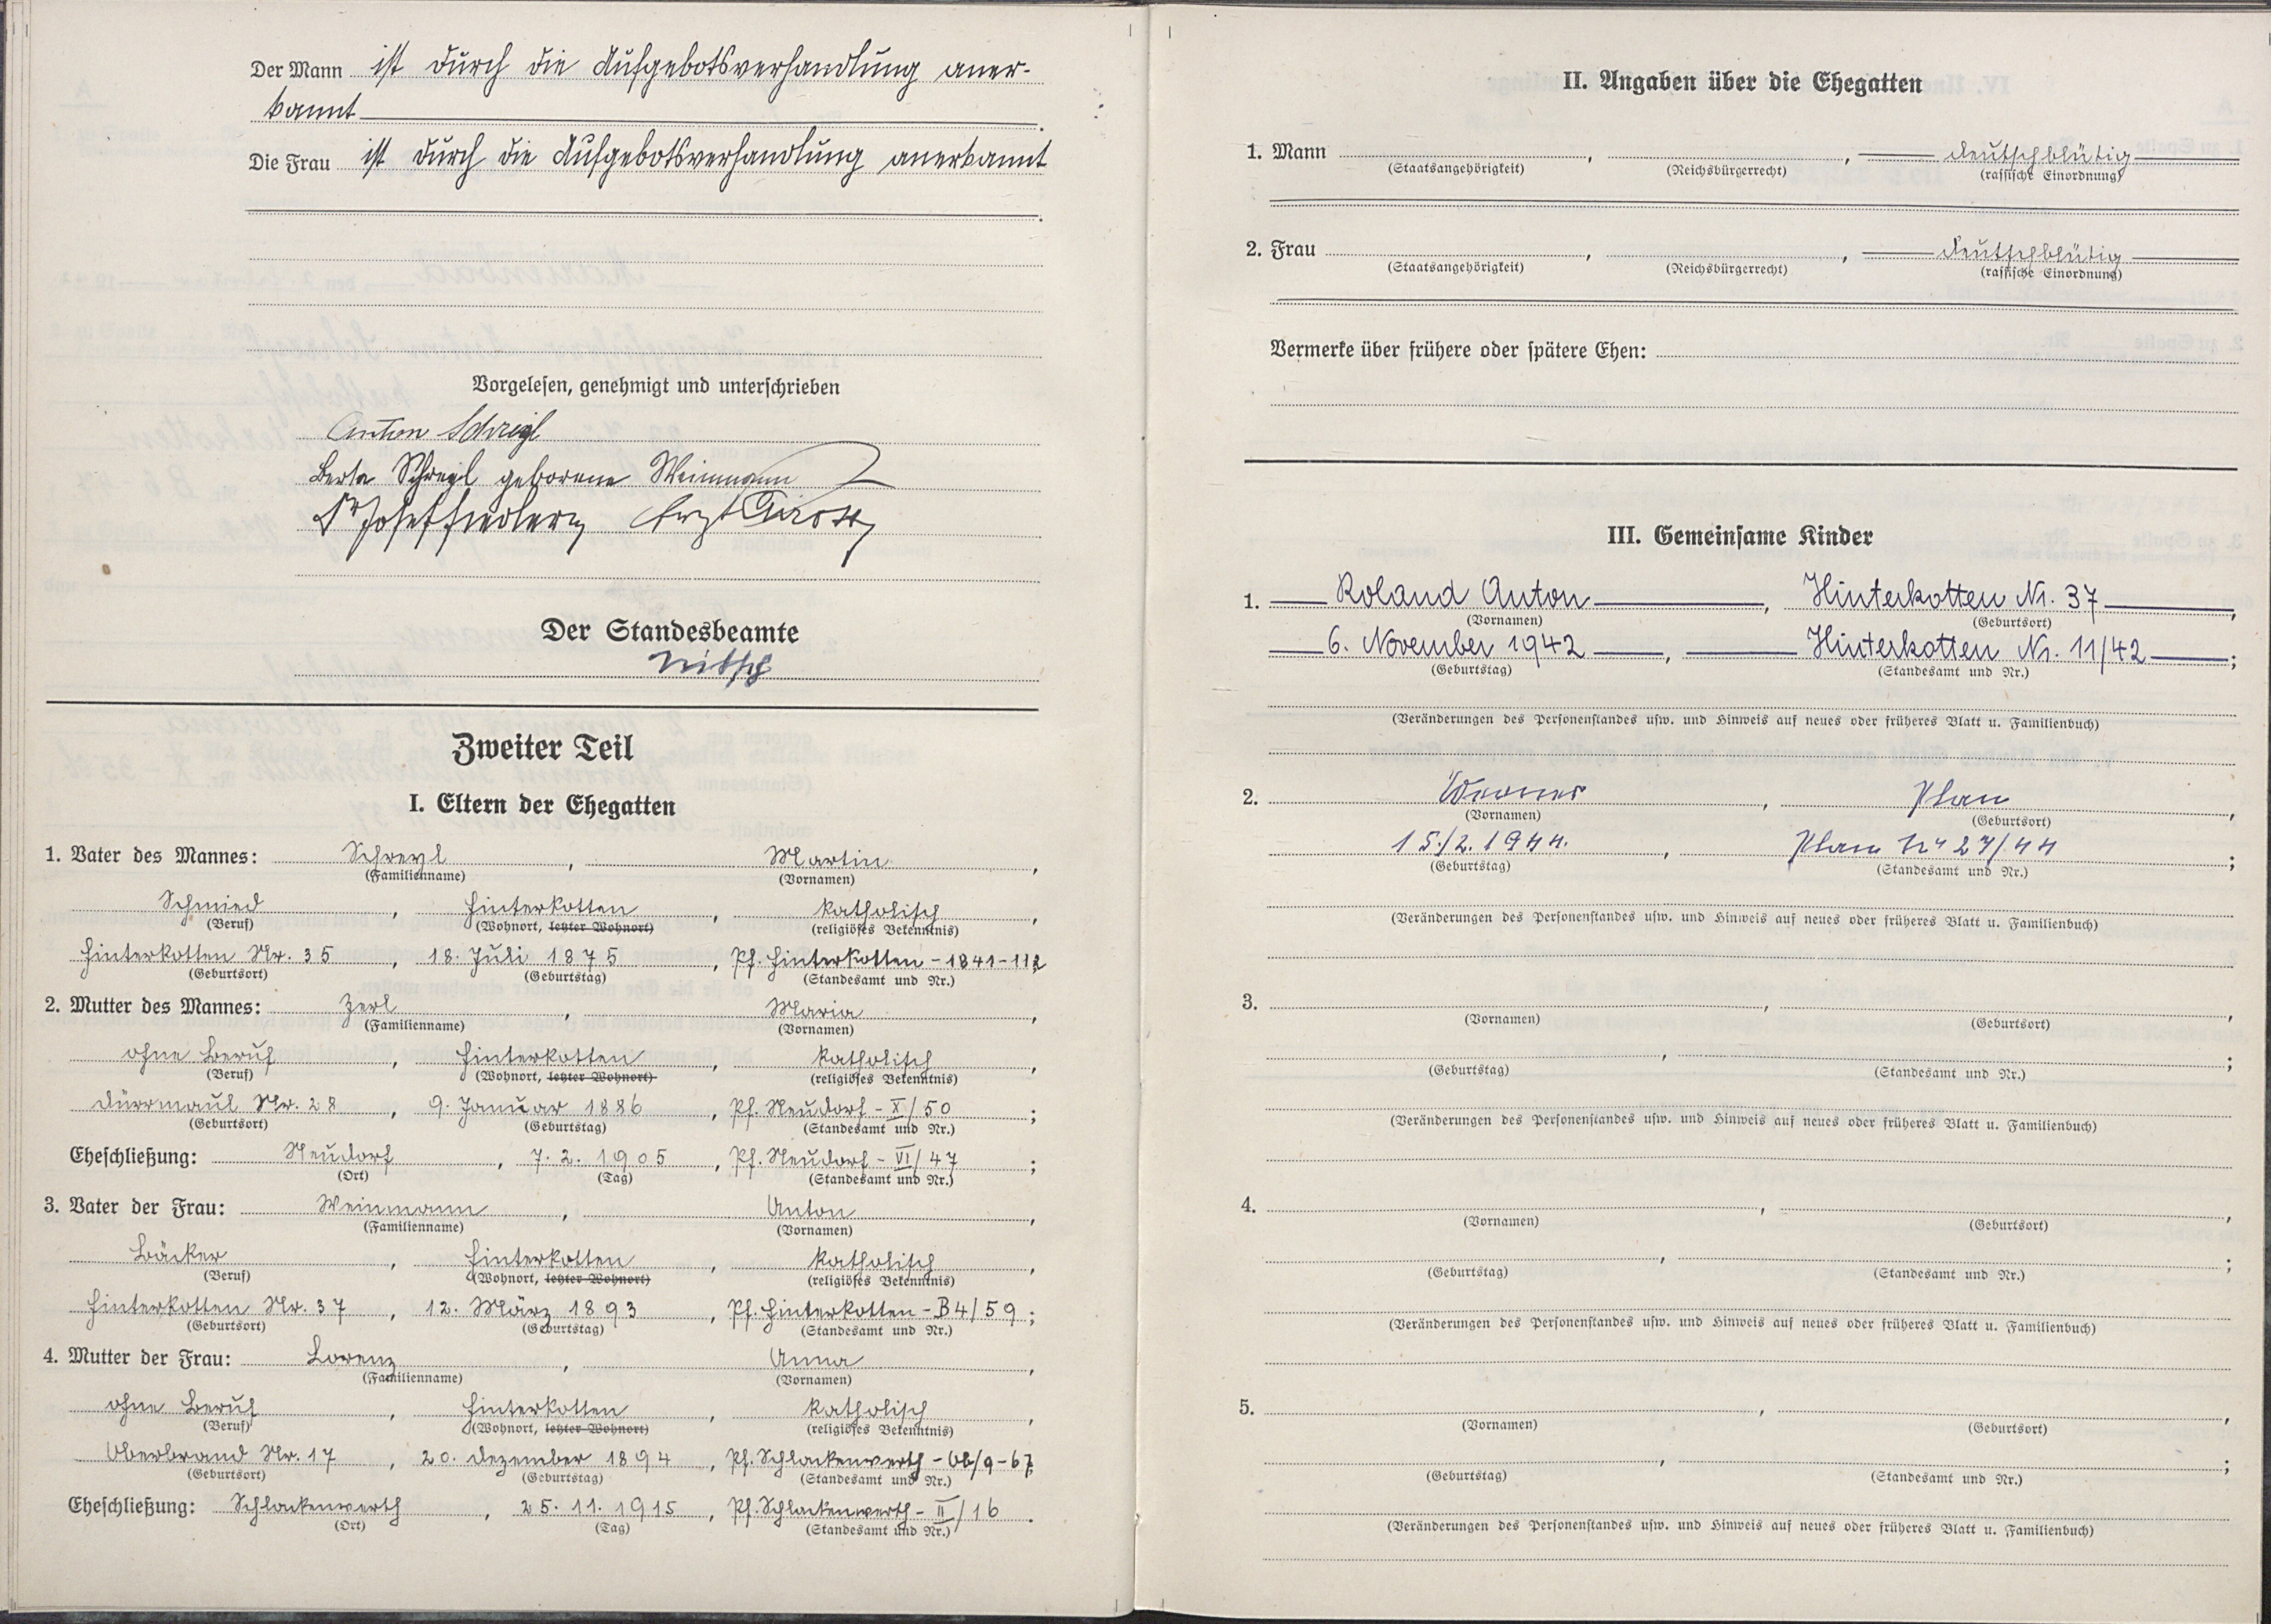 Der Mann ist durch die Aufgebotsverhandlung aner-
kannt.
Die Frau ist durch die Aufgebotsverhandlung anerkannt.
Vorgelesen, genehmigt und unterschrieben
Anton Schreigl
Berta Schregl geborene Weinmann
Dr Josef
Der Standesbeamte
Nitsch
Zweiter Teil
I. Eltern der Ehegatten
1. Vater des Mannes: Schregl, Martin,
(Familienname) (Vornamen)
Schmied, Hinterkotten, katholisch,
(Beruf) (Wohnort, letzter Wohnort) (religiöses Bekenntnis)
Hinterkotten Nr. 35, 18. Juli 1875, Pf. Hinterkotten - 1841-112
(Geburtsort) (Geburtstag) (Standesamt und Nr.)
2. Mutter des Mannes: Zerl, Maria,
(Familienname) (Vornamen)
ohne Beruf, Hinterkotten, katholisch,
(Beruf) (Wohnort, letzter Wohnort) (religiöses Bekenntnis)
Dürrmaul Nr. 28, 9. Januar 1886, Pf. Neudorf - X/50;
(Geburtsort) (Geburtstag) (Standesamt und Nr.)
Eheschließung: Neudorf, 7. 2. 1905, Pf. Neudorf - VI/47;
(Ort) (Tag) (Standesamt und Nr.)
3. Vater der Frau: Weinmann, Anton,
(Familienname) (Vornamen)
Bäcker, Hinterkotten, katholisch,
(Beruf) (Wohnort, letzter Wohnort) (religiöses Bekenntnis)
Hinterkotten Nr. 37, 12. März 1893, Pf. Hinterkotten - B4/59;
(Geburtsort) (Geburtstag) (Standesamt und Nr.)
4. Mutter der Frau: Lorenz, Anna,
(Familienname) (Vornamen)
ohne Beruf, Hinterkotten, katholisch,
(Beruf) (Wohnort, letzter Wohnort) (religiöses Bekenntnis)
Oberbrand Nr. 17, 20. Dezember 1894, Pf. Schlackenwerth - Ob/9-67;
(Geburtsort) (Geburtstag) (Standesamt und Nr.)
Eheschließung: Schlackenwerth, 25. 11. 1915, Pf. Schlackenwerth - II/16.
(Ort) (Tag) (Standesamt und Nr.)
II. Angaben über die Ehegatten
1. Mann , , deutschblütig
(Staatsangehörigkeit) (Reichsbürgerrecht) (rassische Einordnung)
2. Frau , , deutschblütig
(Staatsangehörigkeit) (Reichsbürgerrecht) (rassische Einordnung)
Vermerke über frühere oder spätere Ehen:
III. Gemeinsame Kinder
1. Roland Anton, Hinterkotten Nr. 37,
(Vornamen) (Geburtsort)
6. November 1942, Hinterkotten Nr. 11/42;
(Geburtstag) (Standesamt und Nr.)
(Veränderungen des Personenstandes usw. und Hinweis auf neues oder früheres Blatt u. Familienbuch)
2. Werner, Plan,
(Vornamen) (Geburtsort)
15./2. 1944., Plan Nr 27/44;
(Geburtstag) (Standesamt und Nr.)
(Veränderungen des Personenstandes usw. und Hinweis auf neues oder früheres Blatt u. Familienbuch)
3. , ,
(Vornamen) (Geburtsort)
, ;
(Geburtstag) (Standesamt und Nr.)
(Veränderungen des Personenstandes usw. und Hinweis auf neues oder früheres Blatt u. Familienbuch)
4. , ,
(Vornamen) (Geburtsort)
, ;
(Geburtstag) (Standesamt und Nr.)
(Veränderungen des Personenstandes usw. und Hinweis auf neues oder früheres Blatt u. Familienbuch)
5. , ,
(Vornamen) (Geburtsort)
, ;
(Geburtstag) (Standesamt und Nr.)
(Veränderungen des Personenstandes usw. und Hinweis auf neues oder früheres Blatt u. Familienbuch)